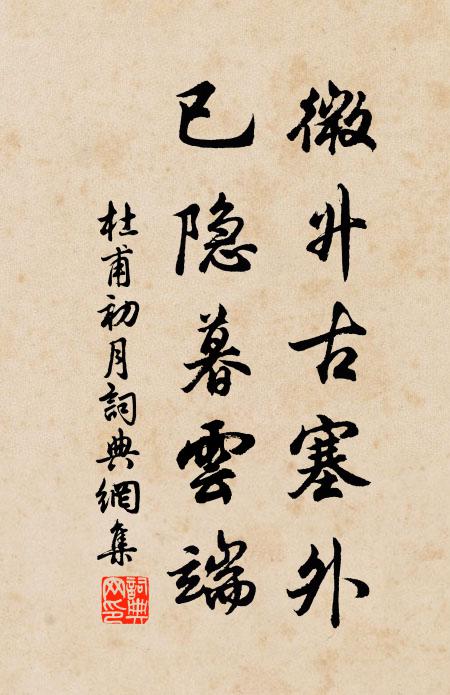 微升古塞外
已隐暮雲端
杜甫初月詞典網集
詞典網印